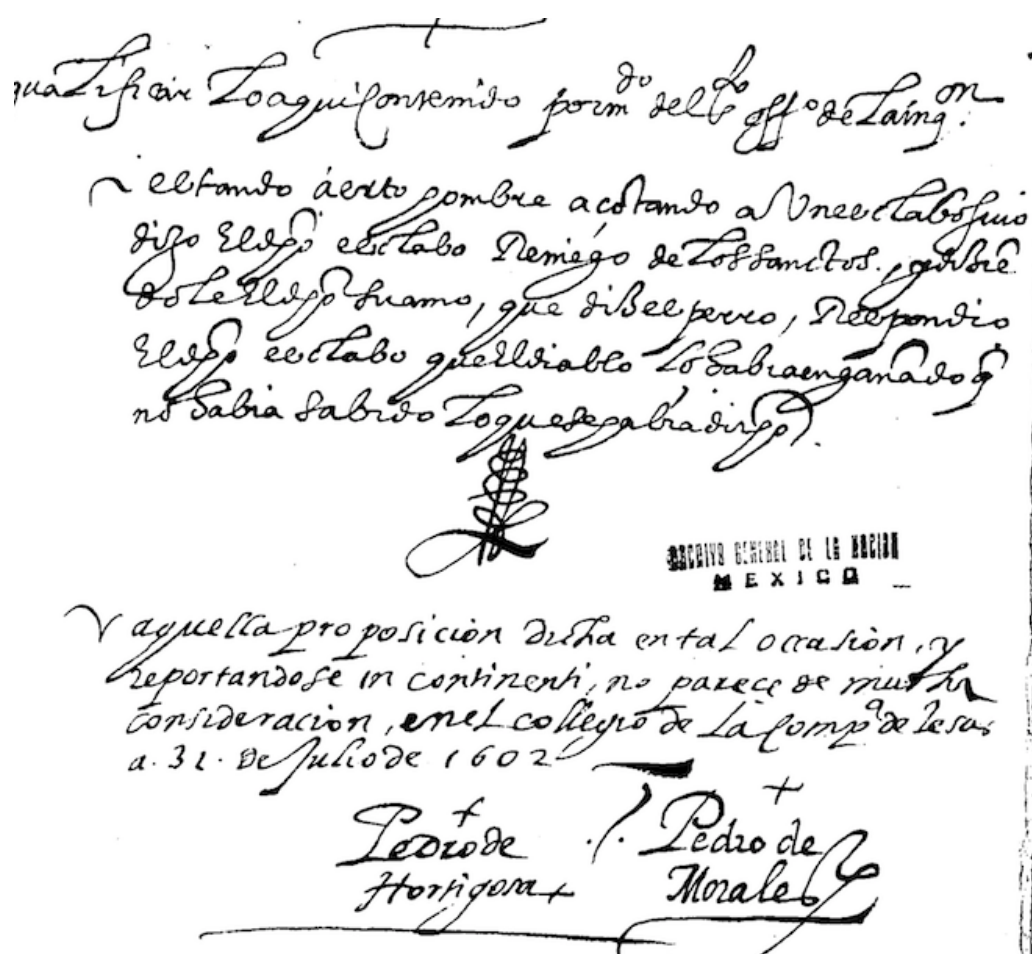 qualificar lo aqui contenido por mdo del sto offo de la inqon.
estando cierto hombre açotando a Un esclabo suio
dixo El dho esclabo Reniego de los sanctos. y disiē
dole El dho su amo, que dise el perro, Respondio
El dho esclabo que El diablo lo habia engañado q
no habia sabido lo que se habia dicho.
ARCHIVO GENERAL DE LA NACION
MEXICO
aquella proposición dicha en tal occasion, y
reportandose in continenti, no parece de mucha
consideracion, en el collegio de la Compa de Iesus
a. 31. de Julio de 1602
Pedro de
Hortigosa
Pedro de
Morales